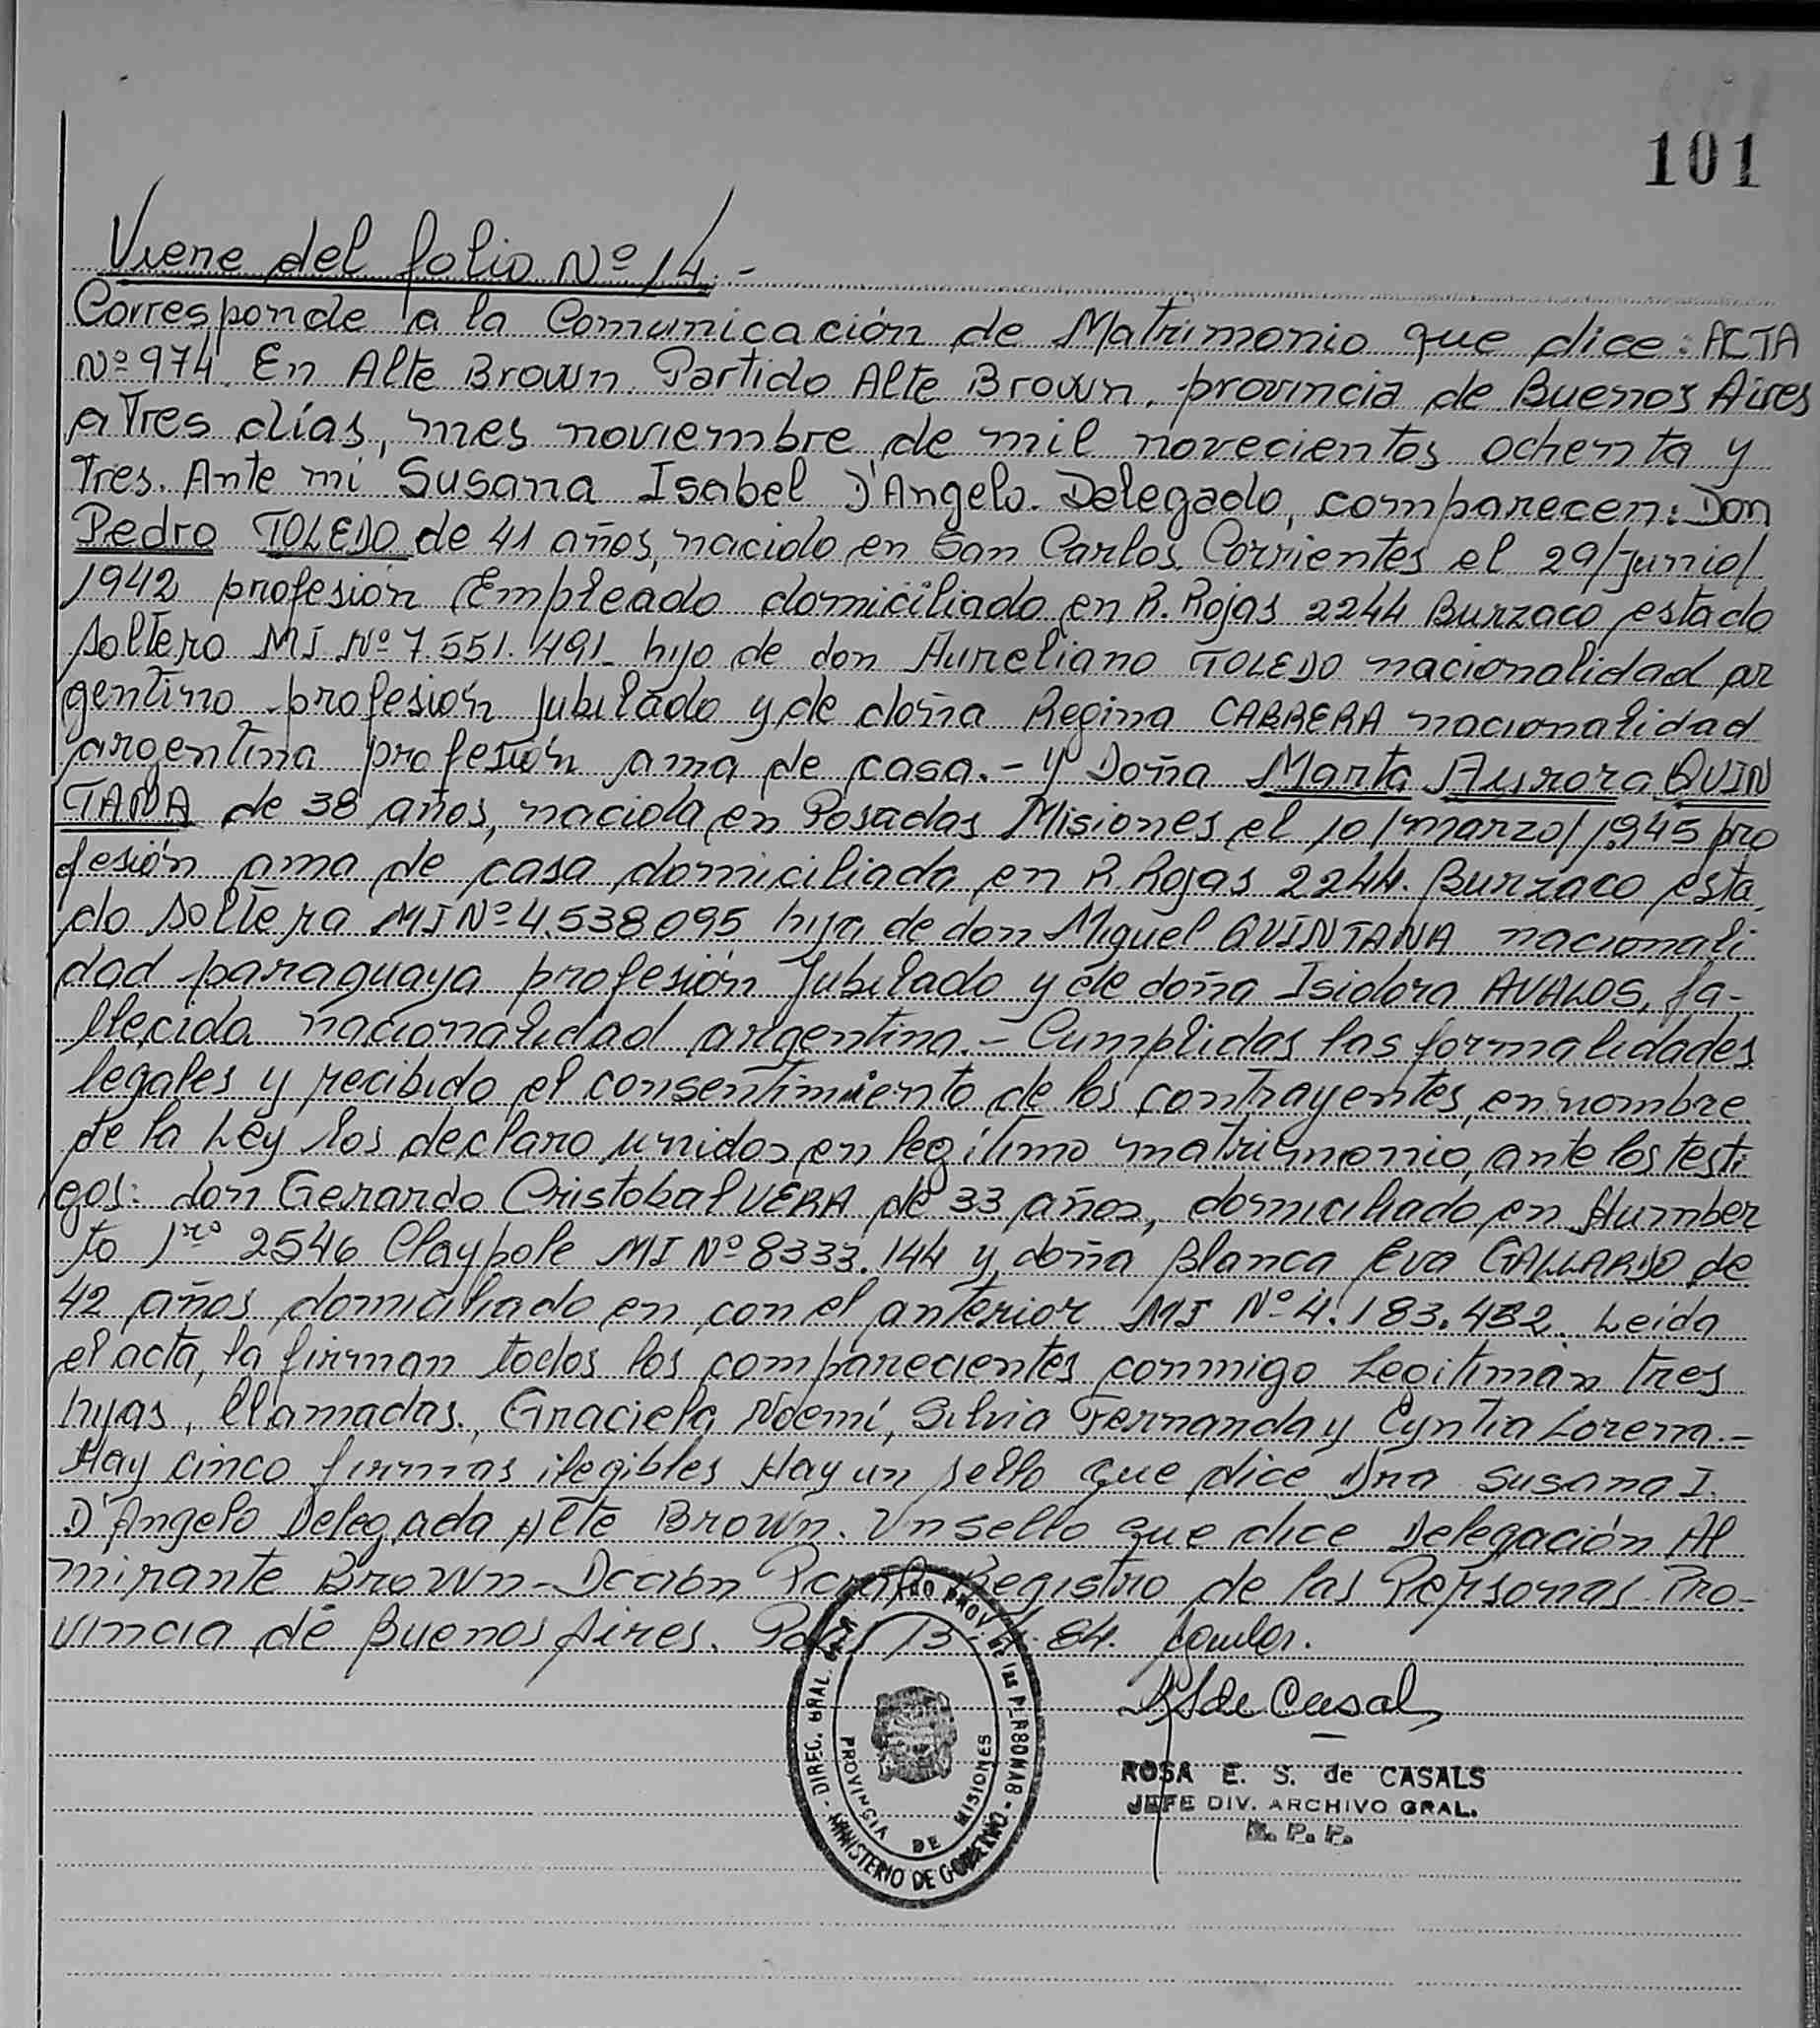 101
Viene del folio Nº 14.-
Corresponde a la Comunicación de Matrimonio que dice: ACTA
Nº 974. En Alte Brown. Partido Alte Brown, provincia de Buenos Aires
a Tres días, mes noviembre de mil novecientos ochenta y
Tres. Ante mi Susana Isabel D'Angelo. Delegado, comparecen: Don
Pedro TOLEDO de 41 años, nacido en San Carlos Corrientes el 29/junio/
1942 profesión Empleado domiciliado en R. Rojas 2244 Burzaco estado
soltero MI Nº 7.551.491_ hijo de don Aureliano TOLEDO nacionalidad ar
gentino profesión jubilado y de doña Regina CABRERA nacionalidad
argentina profesión ama de casa.- y Doña Marta Aurora QUIN
TANA de 38 años, nacida en Posadas Misiones el 10/marzo/1945 pro
fesión ama de casa domiciliada en R. Rojas 2244. Burzaco esta
do soltera MI Nº 4.538095 hija de don Miguel QUINTANA nacionali
dad paraguaya profesión Jubilado y de doña Isidora AVALOS, fa-
llecida nacionalidad argentina.- Cumplidas las formalidades
legales y recibido el consentimiento de los contrayentes, en nombre
de la Ley los declaro unidos en legítimo matrimonio, ante los testi
gos: don Gerardo Cristobal VERA de 33 años, domiciliado en Humber
to 1ro 2546 Claypole MI Nº 8333.144 y doña Blanca Eva GALLARDO de
42 años domiciliado en con el anterior MI Nº 4.183.432. Leída
el acta, la firman todos los comparecientes conmigo Legitiman tres
hijas, llamadas. Graciela Noemí, Silvia Fernanda y Cyntia Lorena.-
Hay cinco firmas ilegibles Hay un sello que dice Dra Susana I.
D'Angelo Delegada Alte Brown. Un sello que dice Delegación Al
mirante Brown - Dcción Registro de las Personas Pro-
vincia de Buenos Aires. 84.
DIREC. GRAL. PROV. DE las PERSONAS - MINISTERIO DE GOBIERNO -
PROVINCIA DE MISIONES
de Casals
ROSA E. S. de CASALS
JEFE DIV. ARCHIVO GRAL.
R. P. P.